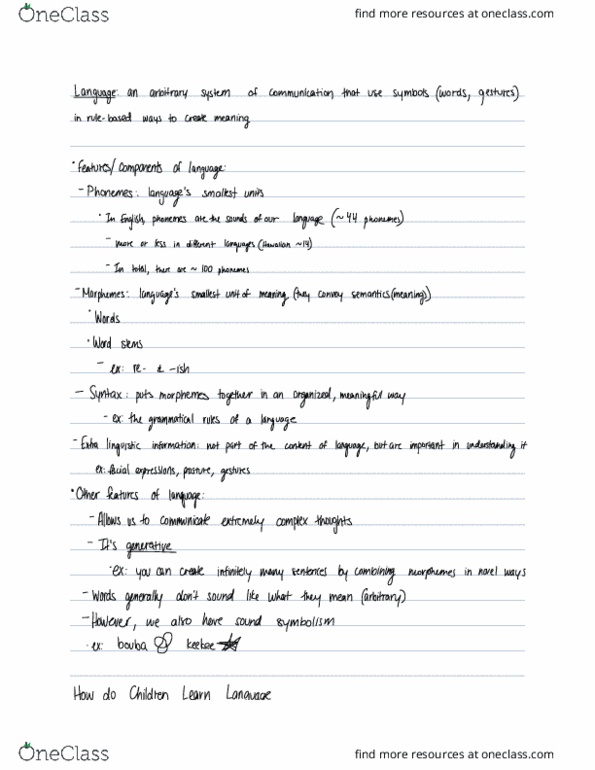 OneClass
find more resources at oneclass.com
Language: an arbitrary system of communication that use symbols (words, gestures)
in rule-based ways to create meaning
• Features/components of language:
- Phonemes: language's smallest units
• In English, phonemes are the sounds of our language (~44 phonemes)
- more or less in different languages (Hawaiian ~14)
- In total, there are ~100 phonemes
- Morphemes: language's smallest unit of meaning (they convey semantics (meaning))
• Words
• Word stems
- ex: re- & -ish
- Syntax: puts morphemes together in an organized, meaningful way
- ex: the grammatical rules of a language
- Extra linguistic information: not part of the content of language, but are important in understanding it
ex: facial expressions, posture, gestures
• Other features of language:
- Allows us to communicate extremely complex thoughts
- It's generative
• ex: you can create infinitely many sentences by combining morphemes in novel ways
- Words generally don't sound like what they mean (arbitrary)
- However, we also have sound symbolism
• ex: bouba keebee
How do Children Learn Language
OneClass
find more resources at oneclass.com